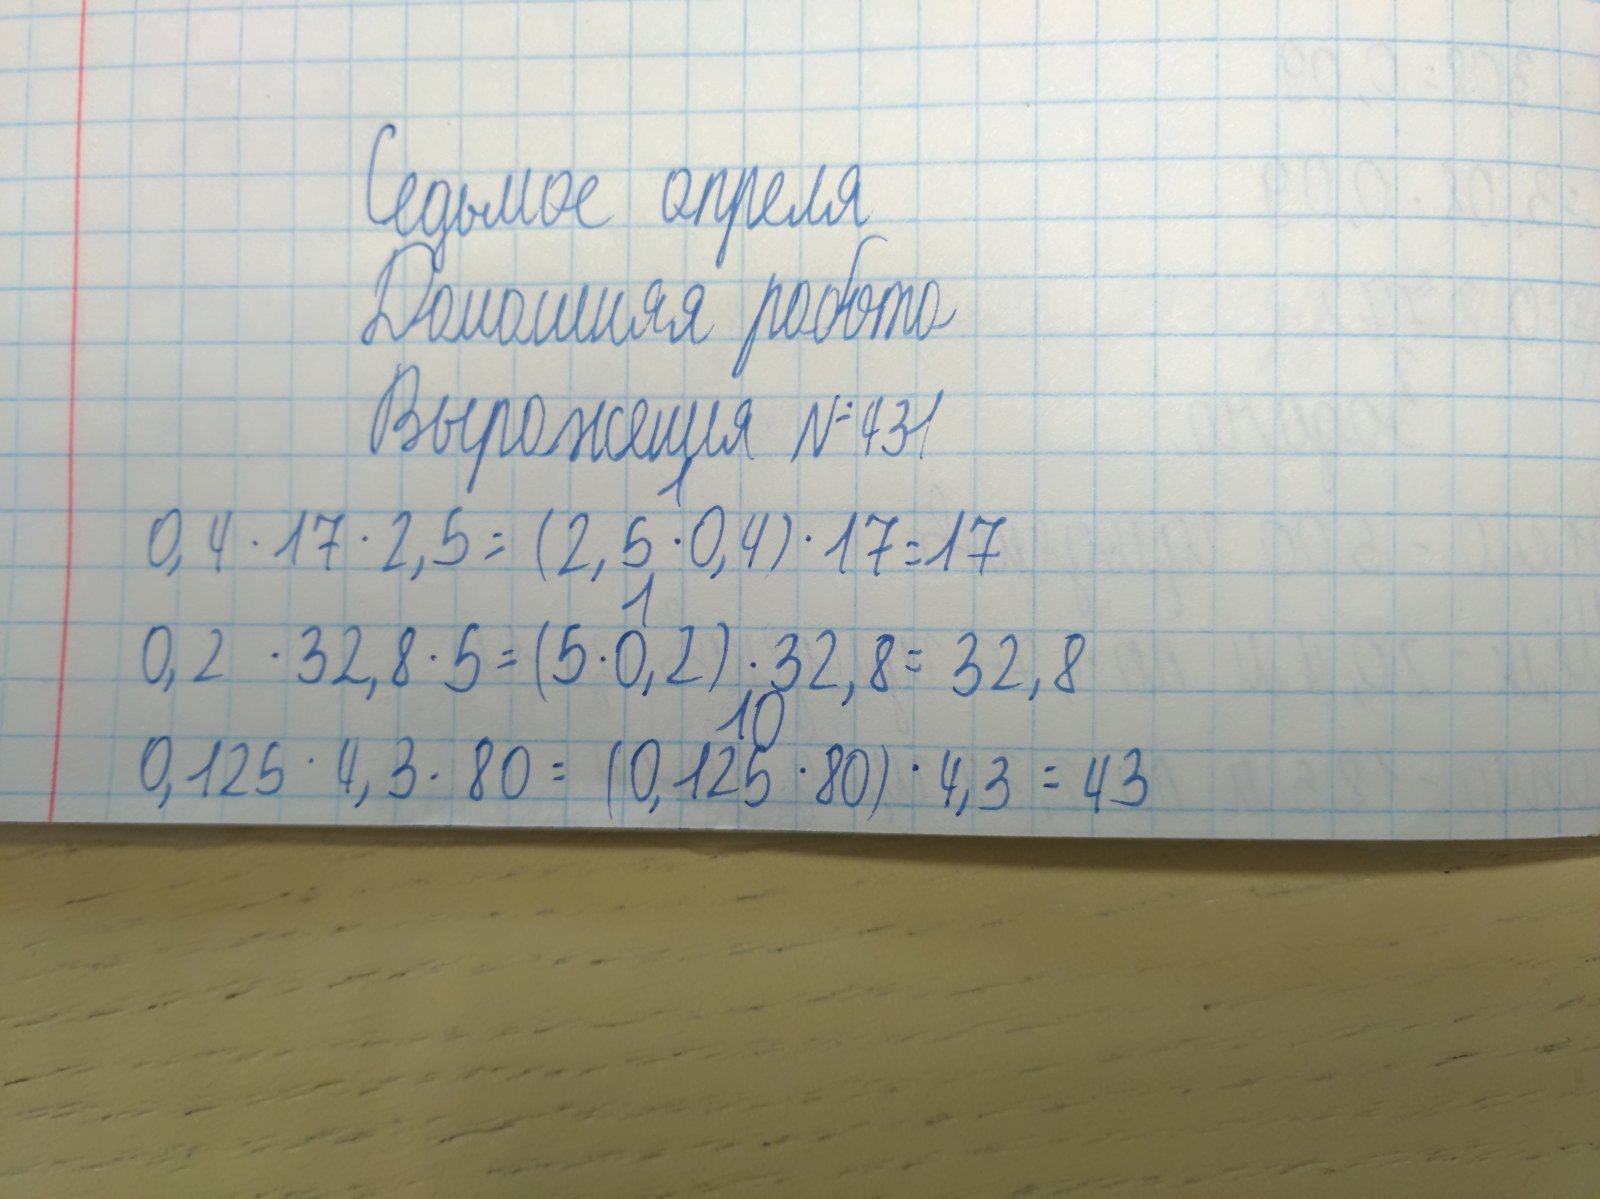 Седьмое апреля
Домашняя работа
Выражения №431
1
0,4 · 17 · 2,5 = (2,5 · 0,4) · 17 = 17
1
0,2 · 32,8 · 5 = (5 · 0,2) · 32,8 = 32,8
10
0,125 · 4,3 · 80 = (0,125 · 80) · 4,3 = 43